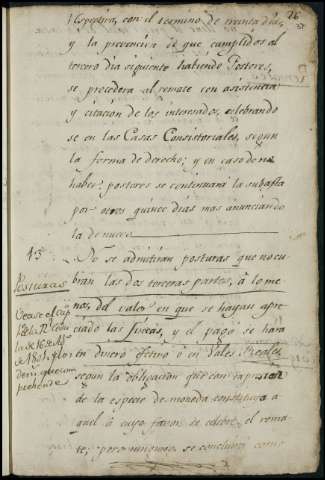 26
respectiva, con el termino de treinta dias,
y la prevencion de que cumplidos al
tercero dia siguiente habiendo Postores,
se procederá al remate con asistencia
y citacion de los interesados, celebrando
se en las Casas Consistoriales, segun
la forma de derecho; y en caso de no
haber postores se continuará la subasta
por otros quince dias mas anunciando
la de nuevo
13
No se admitirán posturas que no cu
bran las dos terceras partes, á lo me
nos, del valor en que se hayan apre
ciado las fincas, y el pago se hará
en dinero efectivo ó en Vales Reales
segun la obligacion que con expresion
de la especie de moneda constituya a
quel á cuyo favor se celebre el rema
te; pero ninguno se concluirá como
Posturas
Vease el cap
de la
de 1801, y lo
prehende